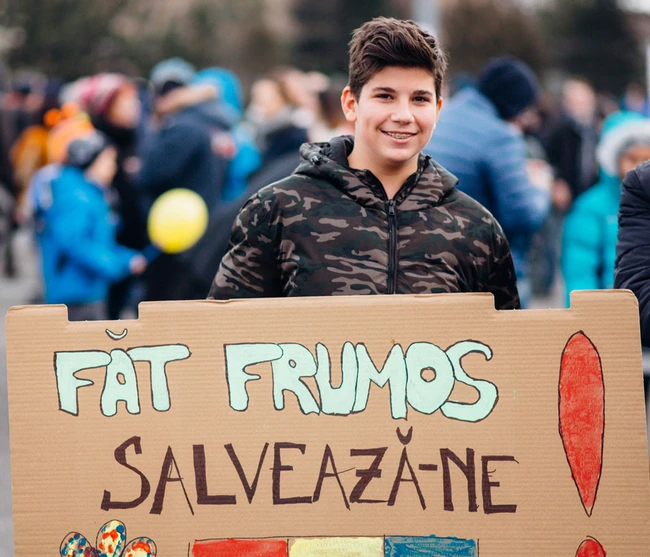 FĂT FRUMOS
SALVEAZĂ-NE!